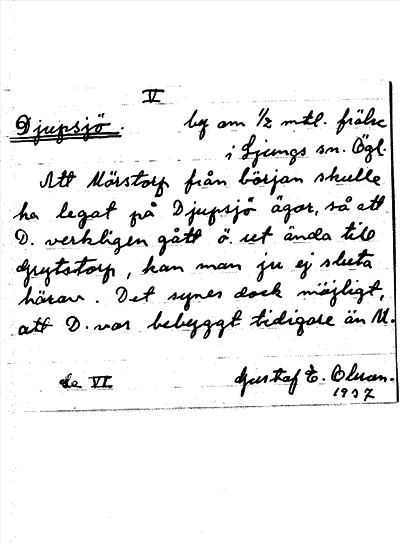 V
Djupsjö. by om 1/2 mtl. frälse
i Ljungs sn. Ögl.
Att Mörstorp från början skulle
ha legat på Djupsjö ägor, så att
D. verkligen gått ö. ut ända till
Grytstorp, kan man ju ej sluta
härav. Det synes dock möjligt,
att D. var bebyggt tidigare än M.
Se VI. Gustaf E. Olsson.
1937